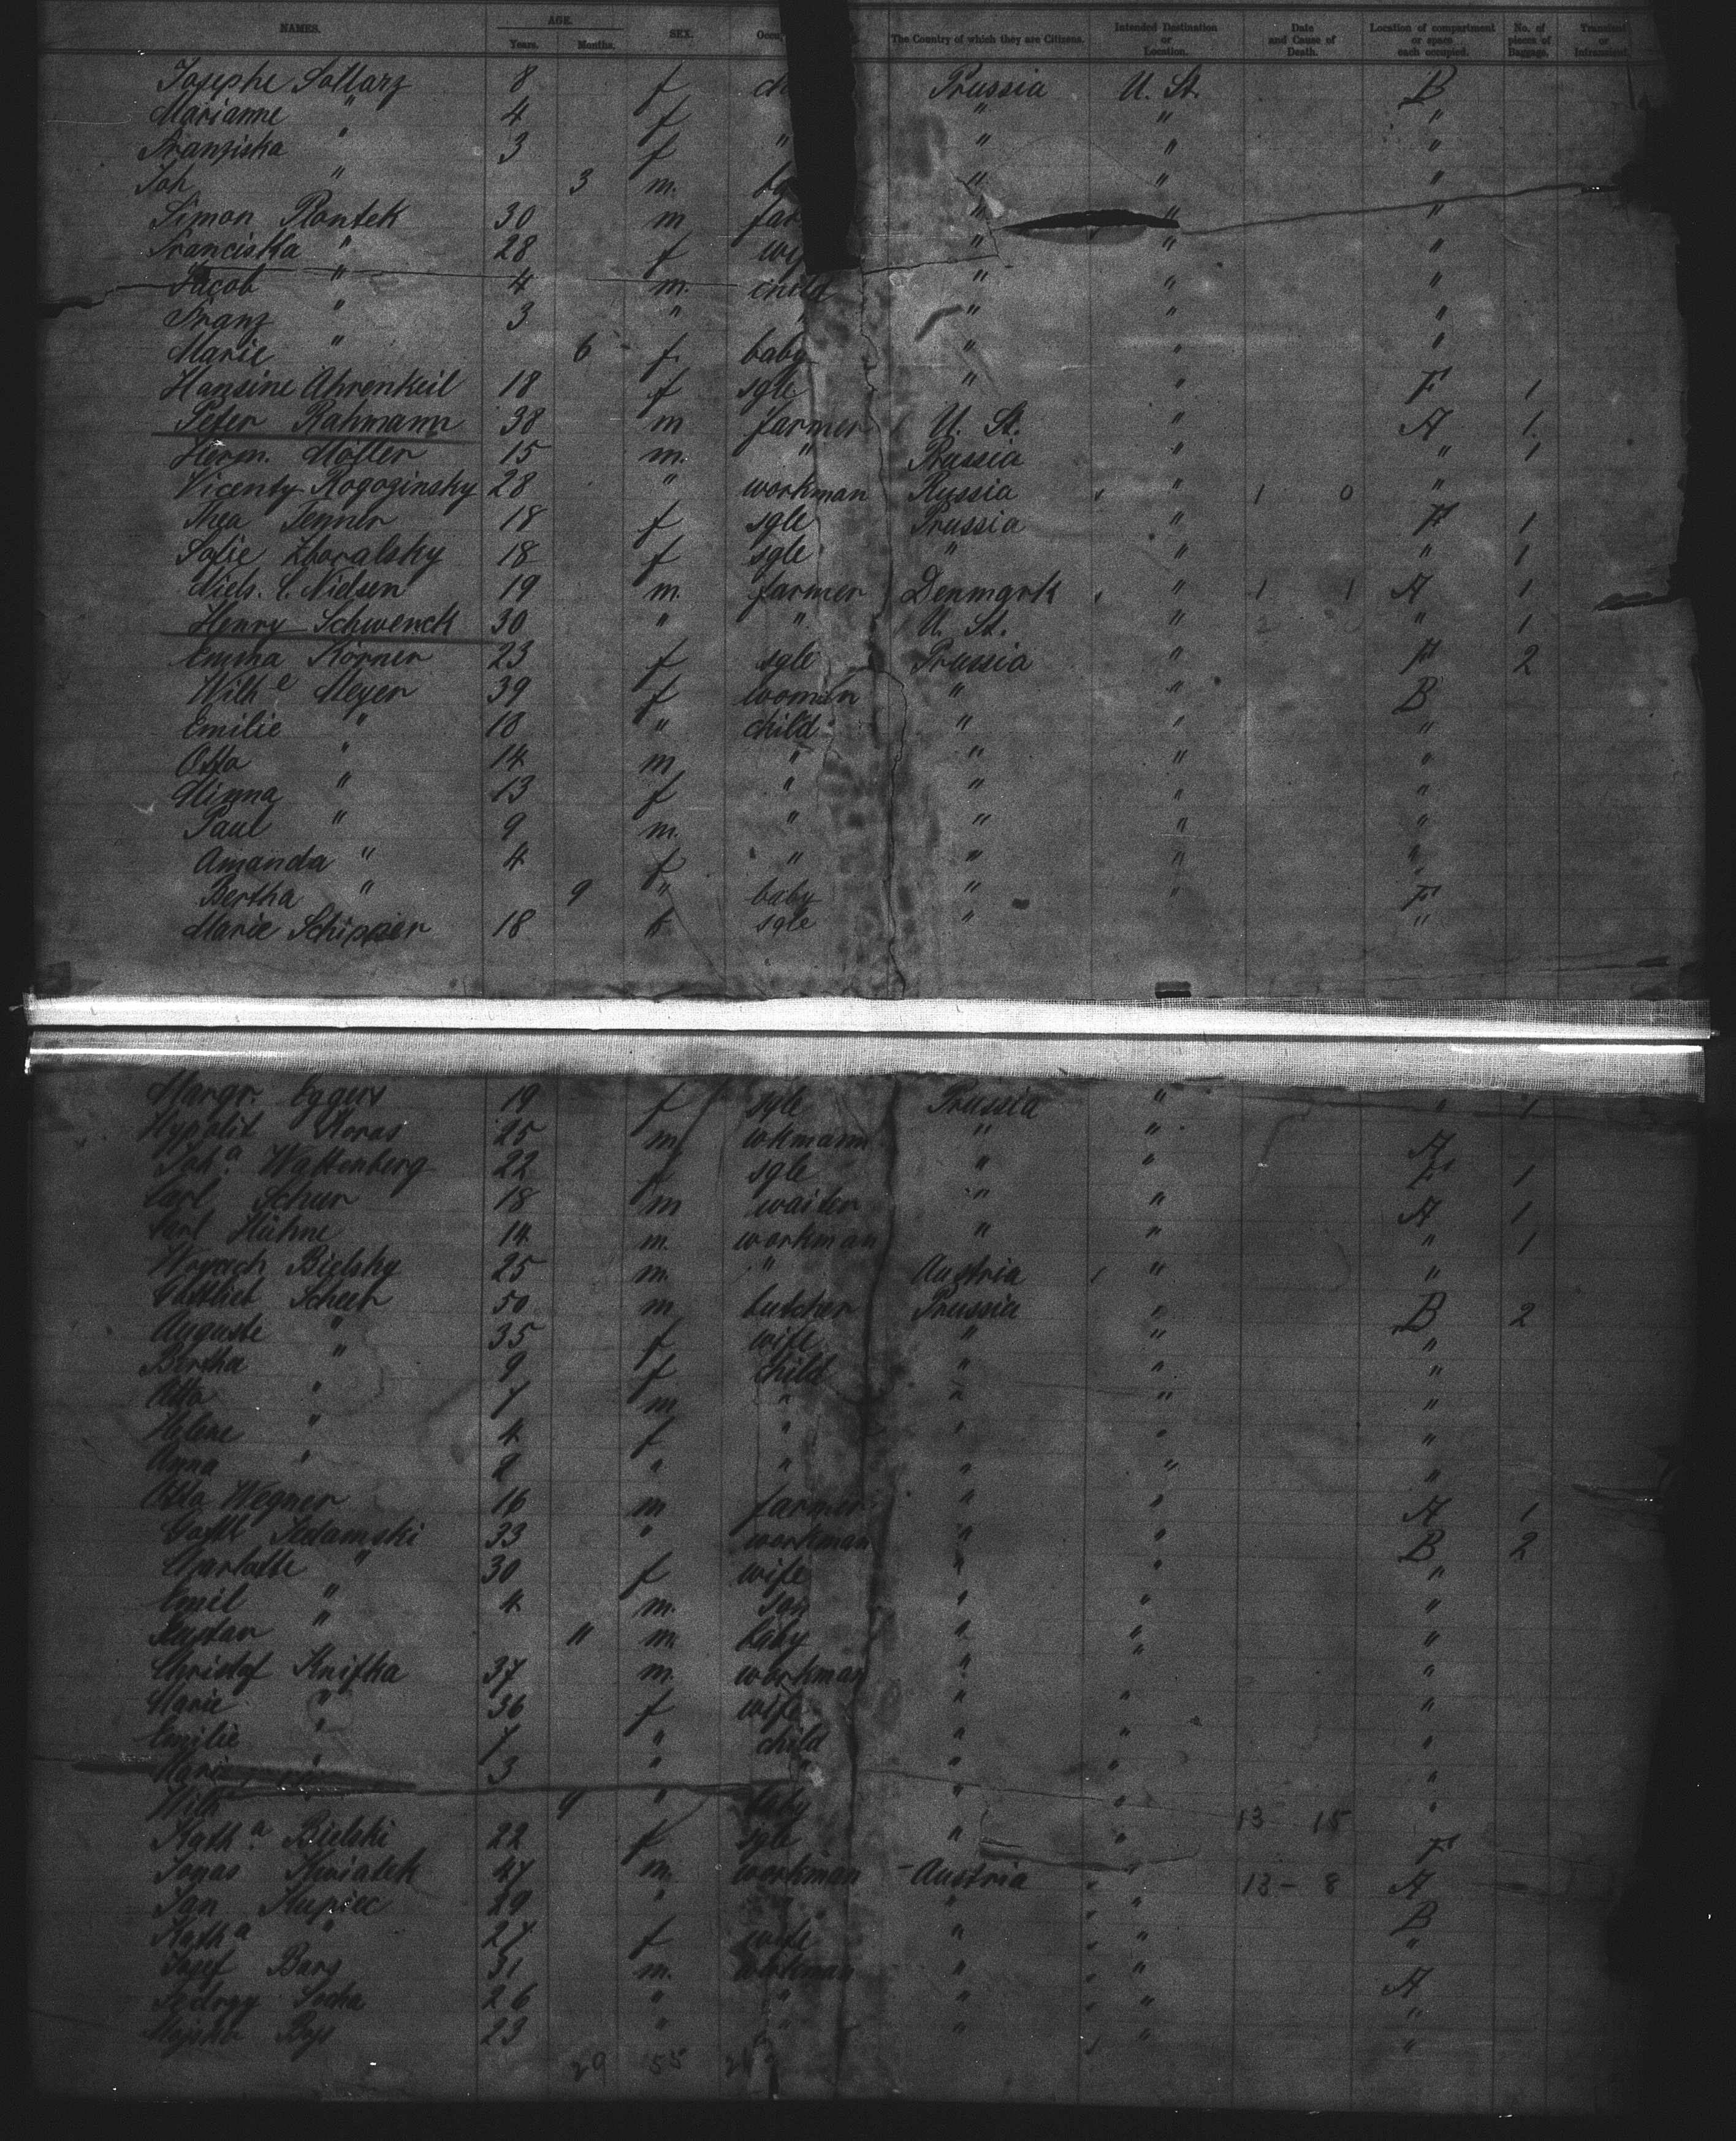 NAMES. AGE. Years. Months. SEX. Occu The Country of which they are Citizens. Intended Destination or Location. Date and Cause of Death. Location of compartment or space each occupied. No. of pieces of Baggage. Transient or
Josephe Sollarz 8 f ch Prussia U. St. B
Marianne " 4 f " " "
Franziska " 3 f " " " "
Joh " 3 m. ba " " "
Simon Rontek 30 m far " " "
Franciska " 28 f wi " " "
Jacob " 4 m. child " " "
Franz " 3 " " " "
Marie " 6 f. baby " " "
Hansine Ahrenkeil 18 f sgle " " F 1
Peter Rahmann 38 m farmer U. St. " A 1.
Herm. Möller 15 m. " Prussia " " 1
Vicenty Rogoginsky 28 " workman Russia " 1 0 "
Thea Jenner 18 f sgle Prussia " F 1
Sofie 18 f sgle " " " 1
Niels. C. Nielsen 19 m. farmer Denmark " 1 1 A 1
Henry Schwenck 30 " " U. St. " " 1
Emma Körner 23 f sgle Prussia " F 2
Wilhe Meyer 39 f woman " " B
Emilie " 18 " child " " "
Otto " 14 m " " " "
Minna " 13 f " " " "
Paul " 9 m. " " " "
Amanda " 4 f " " " "
Bertha " 9 " baby " " F
Marie Schipper 18 f sgle " "
Margr. Eggers 19 f sgle Prussia " " 1
Hypolit 25 m wkmann " " A
Joha Wattenberg 22 f sgle " " F 1
Carl Schur 18 m waiter " " A 1
Carl Hühne 14 m. workman " " " 1
Bielsky 25 m. " Austria " "
Gottlieb Scheer 50 m butcher Prussia " B 2
Auguste " 35 f wife " " "
Bertha " 9 f child " " "
Otto " 7 m " " " "
Helene " 4 f " " " "
Anna " 2 " " " " "
Otto Wegner 16 m farmer " " A 1
Gottl. Adamski 33 " workman " " B 2
Charlotte " 30 f wife " " "
Emil " 4 m. son " " "
Gustav " 11 m. baby " " "
Christof Knifka 37 m. workman " " "
Marie " 36 f wife " " "
Emilie " 7 " child " " "
Marie " 3 " " " " "
Wilh " 9 " baby " " 13 15 "
Katha Bielski 22 f sgle " " F
Kwiatek 47 m. workman Austria " 13 - 8 A
Jan Kupiec 29 " " " " B
Katha " 27 f wife " " "
Josef Bars 31 m. workman " " A
Socha 26 " " " " "
23 " " " " "
29 55